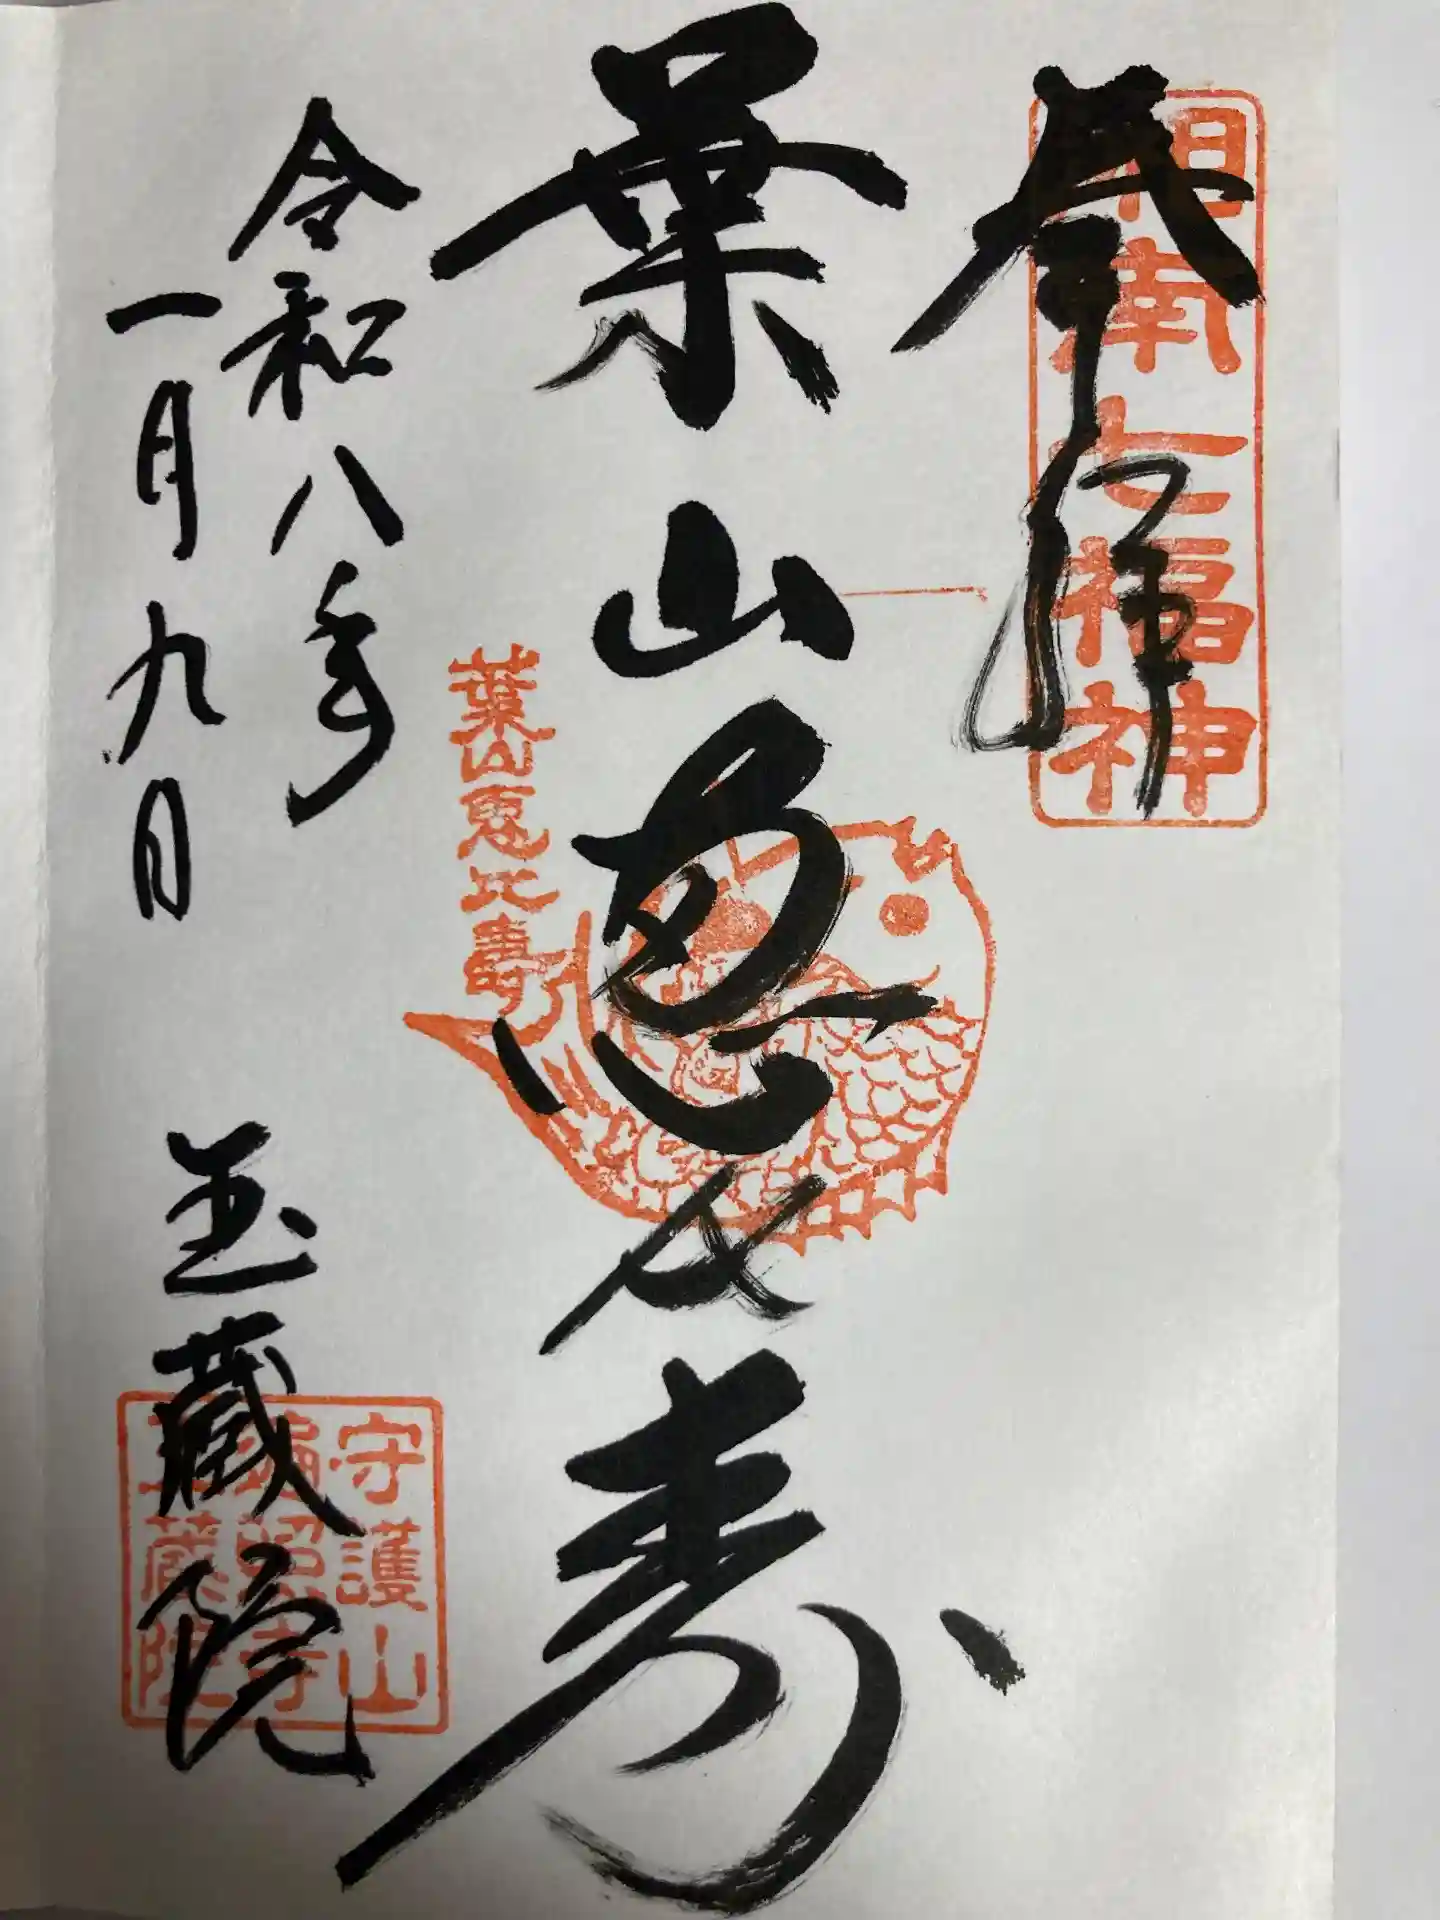 奉拝
湘南七福神
葉山恵比寿
葉山恵比寿
令和八年
一月九日
玉蔵院
守護山
遍照寺
玉蔵院